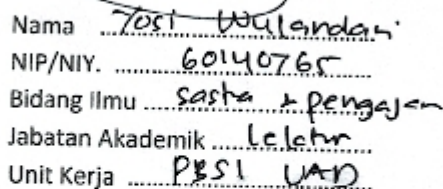 Nama Yosi Wulandari
NIP/NIY. 60140765
Bidang Ilmu sastra & pengajaran
Jabatan Akademik Lektor
Unit Kerja PBSI UAD